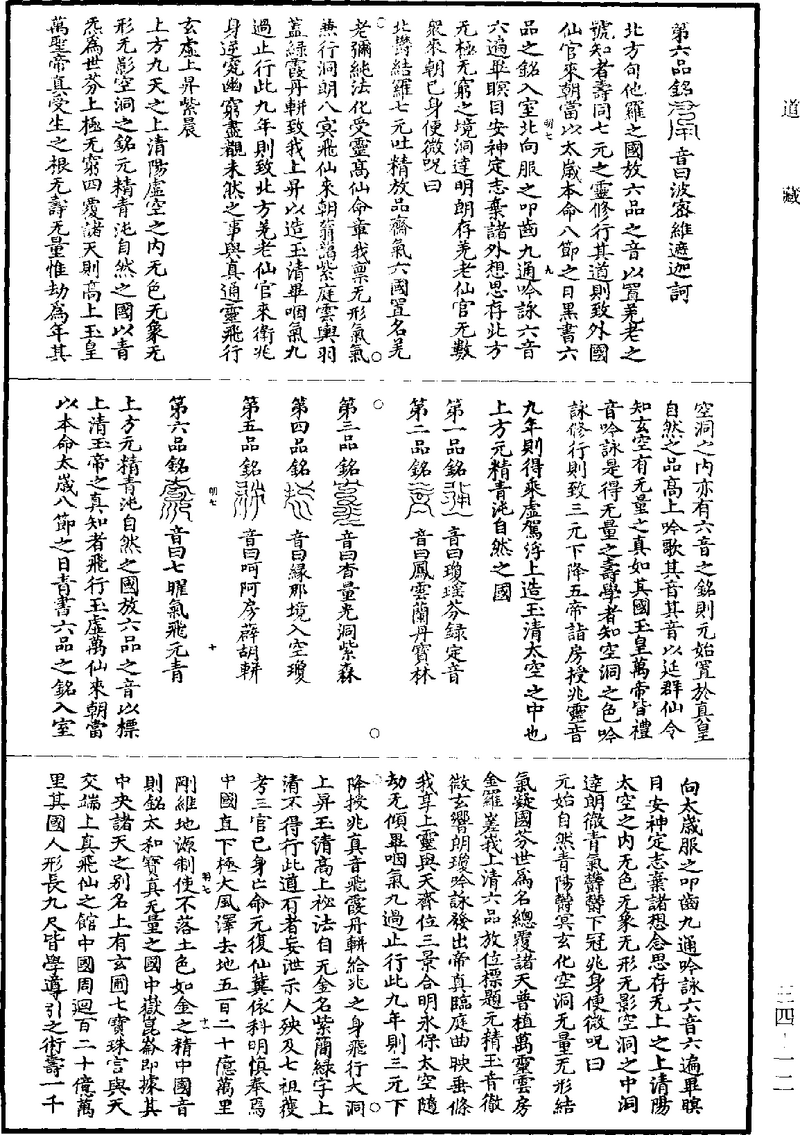 道藏
第六品銘 音曰波容維遮迦訶
北方旬他羅之國放六品之音以置羌老之
號知者壽同七元之靈修行其道則致外國
仙官來朝當以太歲本命八節之日黑書六
品之銘入室北向服之叩齒九通吟詠六音
六遍畢瞑目安神定志棄諸外想思存北方
无極无窮之境洞達明朗存羌老仙官无數
衆來朝己身便微呪曰
北鬱結羅七元吐精放品齋氣六國置名羌
老彌純法化受靈高仙命章我禀无形氣氣
兼行洞朗八冥飛仙來朝蓊藹紫庭雲輿羽
蓋綠霞丹軿致我上昇以造玉清畢咽氣九
過止行此九年則致北方羌老仙官來衛兆
身逆究幽窮盡觀未然之事與真通靈飛行
玄虛上昇紫晨
上方九天之上清陽虛空之内无色无象无
形无影空洞之銘元精青沌自然之國以青
炁為世芬上極无窮四覆諸天則高上玉皇
萬聖帝真受生之根无壽无量惟劫爲年其
空洞之内亦有六音之銘則元始置於真皇
自然之品高上吟歌其音其音以延群仙令
知玄空有无量之真如其國玉皇萬帝皆禮
音吟詠是得无量之壽學者知空洞之色吟
詠修行則致三元下降五帝詣房授兆靈音
九年則得乘虛駕浮上造玉清太空之中也
上方元精青沌自然之國
第一品銘 音曰瓊瑤芬録定音
第二品銘 音曰鳳雲蘭丹寶林
第三品銘 音曰杳量光洞紫森
第四品銘 音曰緣那境入空瓊
第五品銘 音曰呵阿房薜胡軿
第六品銘 音曰七曜氣飛元青
上方元精青沌自然之國放六品之音以標
上清玉帝之真知者飛行玉虛萬仙來朝當
以本命太歲八節之日青書六品之銘入室
向太歲服之叩齒九通吟詠六音六遍畢瞑
目安神定志棄諸想念思存无上之上清陽
太空之内无色无象无形无影空洞之中洞
達朗徹青氣鬱鬱下冠兆身便微呪曰
元始自然青陽鬱冥玄化空洞无量无形結
氣凝國芬世爲名總覆諸天普植萬靈雲房
金羅嵯峩上清六品放位標題元精玉音徹
微玄響朗瓊吟詠發出帝真臨庭曲映垂條
我享上靈與天齊位三景合明永保太空隨
劫无傾畢咽氣九過止行此九年則三元下
降授兆真音飛霞丹軿給兆之身飛行大洞
上昇玉清高上祕法自无金名紫簡緑字上
清不得行此道有者妄泄示人殃及七祖獲
考三官己身亡命元復仙冀依科明慎奉焉
中國直下極大風澤去地五百二十億萬里
剛維地源制使不落土色如金之精中國音
則銘太和寶真无量之國中嶽崑崙即據其
中央諸天之別名上有玄圃七寶珠宫與天
交端上真飛仙之館中國周迴百二十億萬
里其國人形長九尺皆學導引之術壽一千
三四·一二